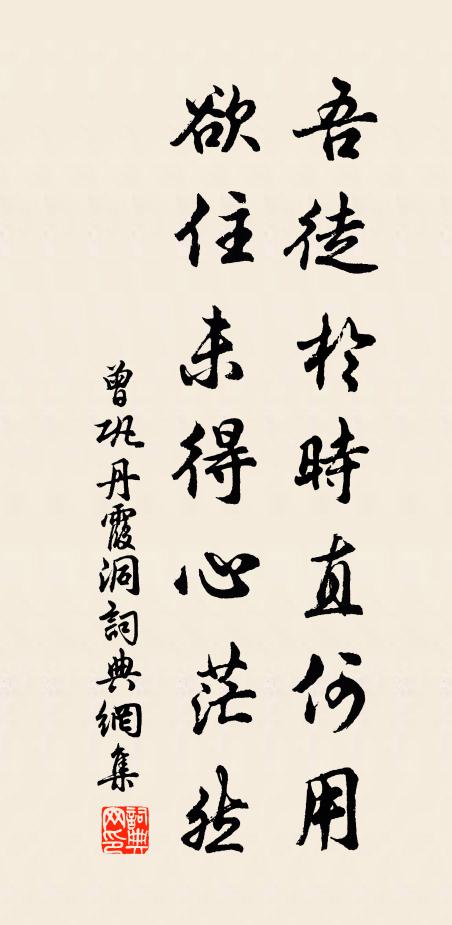 吾徒於時直何用
欲住未得心茫然
曾巩丹霞洞詞典網集
詞典網印